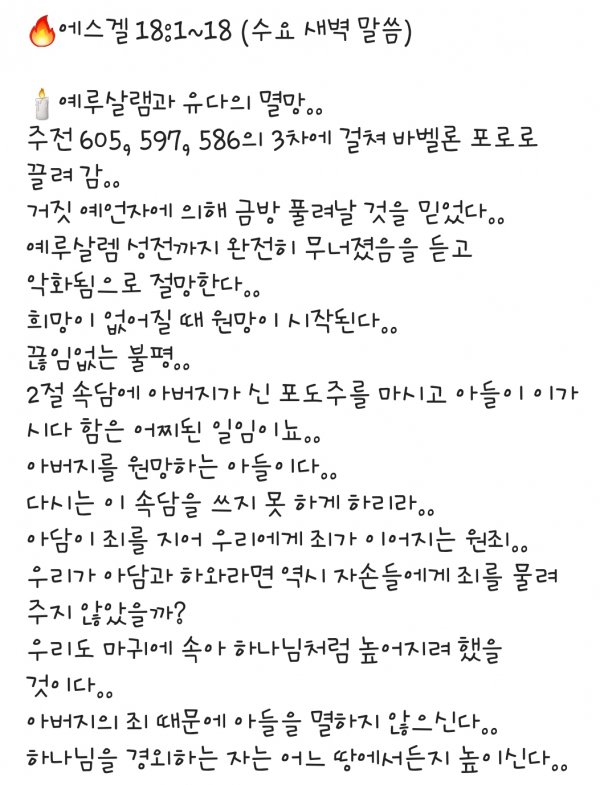 🔥에스겔 18:1~18 (수요 새벽 말씀)
🕯예루살램과 유다의 멸망。。
주전 605, 597, 586의 3차에 걸쳐 바벨론 포로로
끌려 감。。
거짓 예언자에 의해 금방 풀려날 것을 믿었다。。
예루살렘 성전까지 완전히 무너졌음을 듣고
악화됨으로 절망한다。。
희망이 없어질 때 원망이 시작된다。。
끊임없는 불평。。
2절 속담에 아버지가 신 포도주를 마시고 아들이 이가
시다 함은 어찌된 일임이뇨。。
아버지를 원망하는 아들이다。。
다시는 이 속담을 쓰지 못 하게 하리라。。
아담이 죄를 지어 우리에게 죄가 이어지는 원죄。。
우리가 아담과 하와라면 역시 자손들에게 죄를 물려
주지 않았을까?
우리도 마귀에 속아 하나님처럼 높어지려 했을
것이다。。
아버지의 죄 때문에 아들을 멸하지 않으신다。。
하나님을 경외하는 자는 어느 땅에서든지 높이신다。。